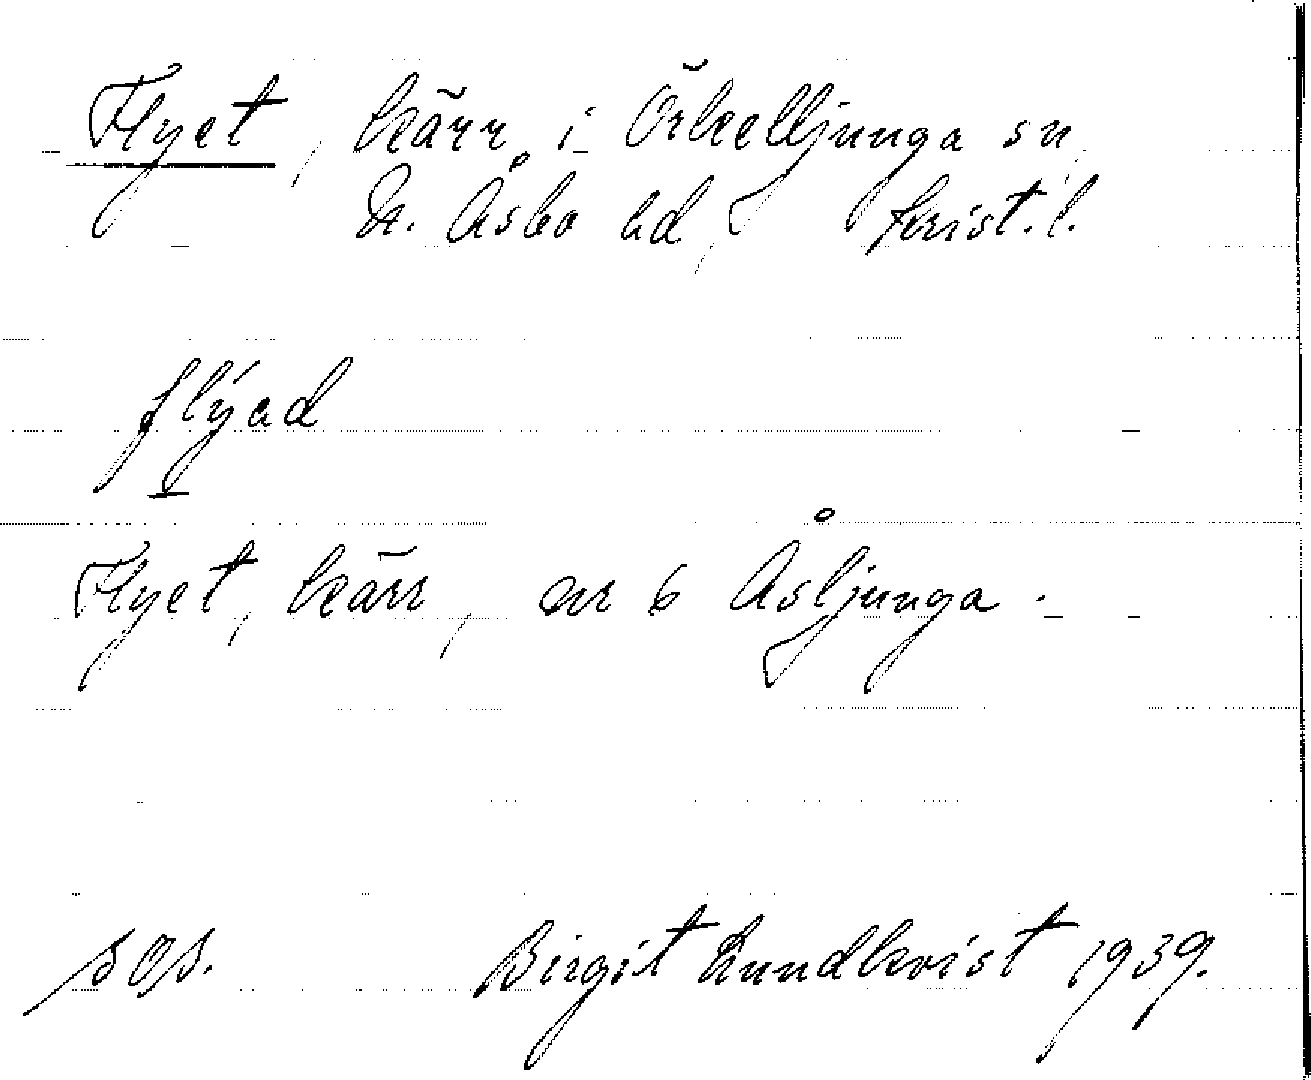 Flyet, kärr i Örkelljunga sn
N. Åsbo hd, Krist. l.
flýad
Flyet, kärr, nr 6 Åsljunga.
sgs. Birgit Lundkvist 1939.